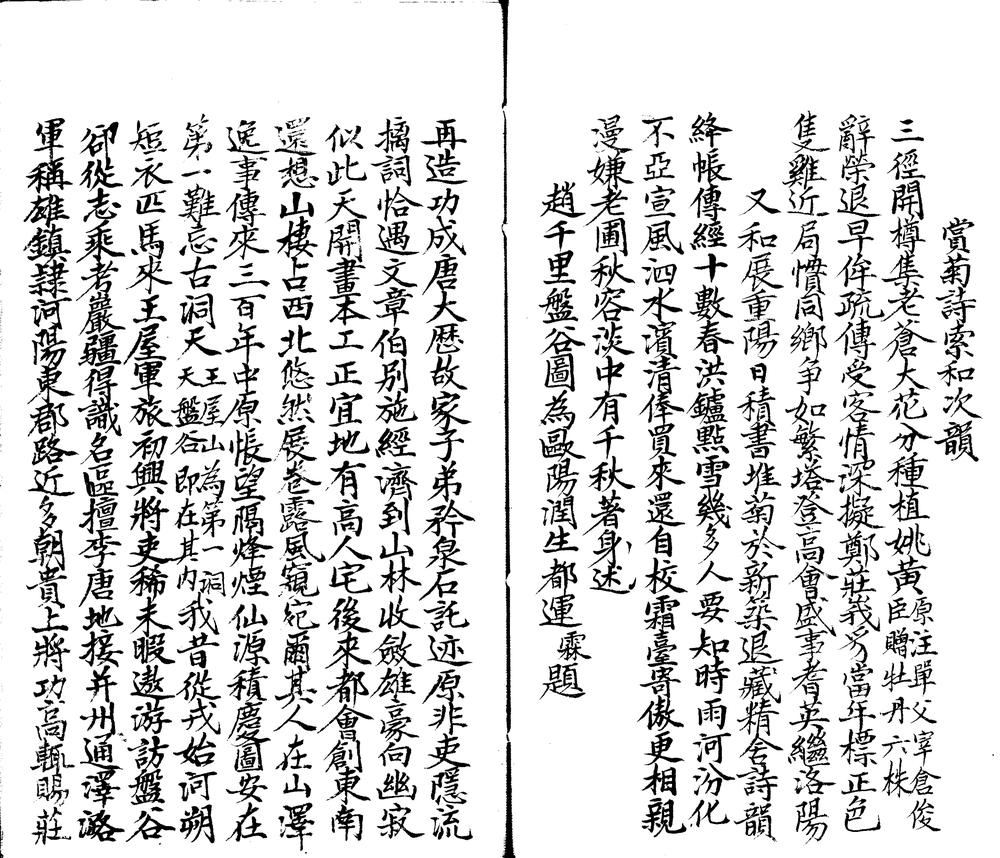 賞菊詩索和次韻
三徑開樽集老蒼大花分種植姚黃原注單父宰倉俊臣贈牡丹六株
辭榮退早侔疏傳受客情深擬鄭莊義爻當年標正色
隻雞近局慣同鄉爭如繁塔登高會盛事耆英繼洛陽
又和展重陽日積書堆菊於新築退藏精舍詩韻
絳帳傳經十數春洪鑪點雪幾多人要知時雨河汾化
不亞宣風泗水濱清俸買來還自校霜臺寄傲更相親
漫嫌老圃秋容淡中有千秋著身述
趙千里盤谷圖為歐陽潤生都運霖題
再造功成唐大歷故家子弟矜泉石託迹原非吏隱流
摛詞恰遇文章伯別施經濟到山林收斂雄豪向幽寂
似此天開畫本工正宜地有高人宅後來都會創東南
還想山棲占西北悠然展卷露風窺宛爾其人在山澤
逸事傳來三百年中原悵望隔烽煙仙源積慶圖安在
第一難忘古洞天王屋山為第一洞天盤谷即在其內我昔從戎始河朔
短衣匹馬來王屋軍旅初興將吏稀未暇遨游訪盤谷
卻從志乘考巖疆得識名區擅李唐地接并州通澤潞
軍稱雄鎮隸河陽東郡路近多朝貴上將功高輒賜莊